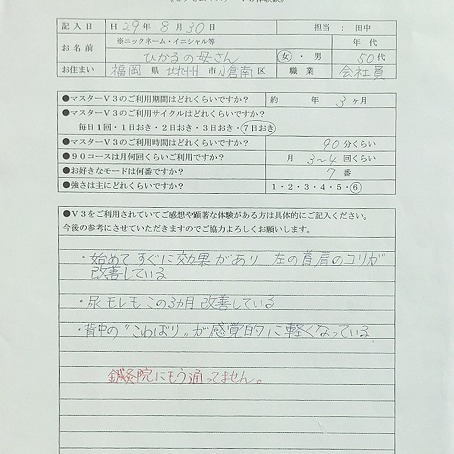 記入日 日29年 8月30日 担当：田中
お名前 ※ニックネーム・イニシャル等 年代
ひかるの母さん 女・男 50代
お住まい 福岡県 北九州市 小倉南区 職業 会社員
●マスターV3のご利用期間はどれくらいですか？ 約 年 3ヶ月
●マスターV3のご利用サイクルはどれくらいですか？
毎日1回・1日おき・2日おき・3日おき・7日おき
●マスターV3のご利用時間はどれくらいですか？ 90分くらい
●90コースは月何回くらいご利用ですか？ 月 3～4回くらい
●お好きなモードは何番ですか？ 7番
●強さは主にどれくらいですか？ 1・2・3・4・5・6
●V3をご利用されていてご感想や顕著な体験がある方は具体的にご記入ください。
今後の参考にさせていただきますのでご協力よろしくお願いします。
・始めてすぐに効果があり 左の首肩のコリが
改善している
・尿モレもこの3カ月 改善している
・背中の“こわばり”が感覚的に軽くなっている
鍼灸院にもう通ってません。